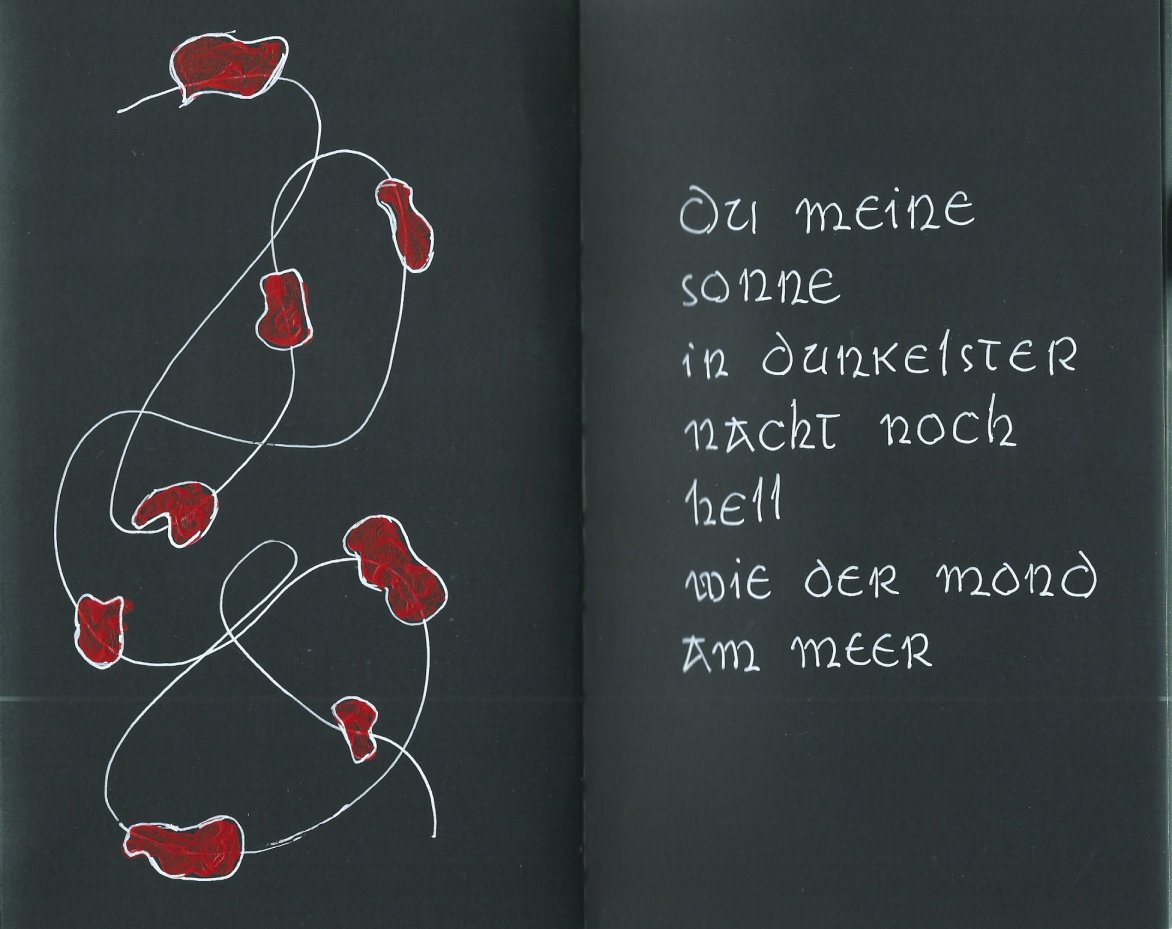 du meine
sonne
in dunkelster
nacht noch
hell
wie der mond
am meer